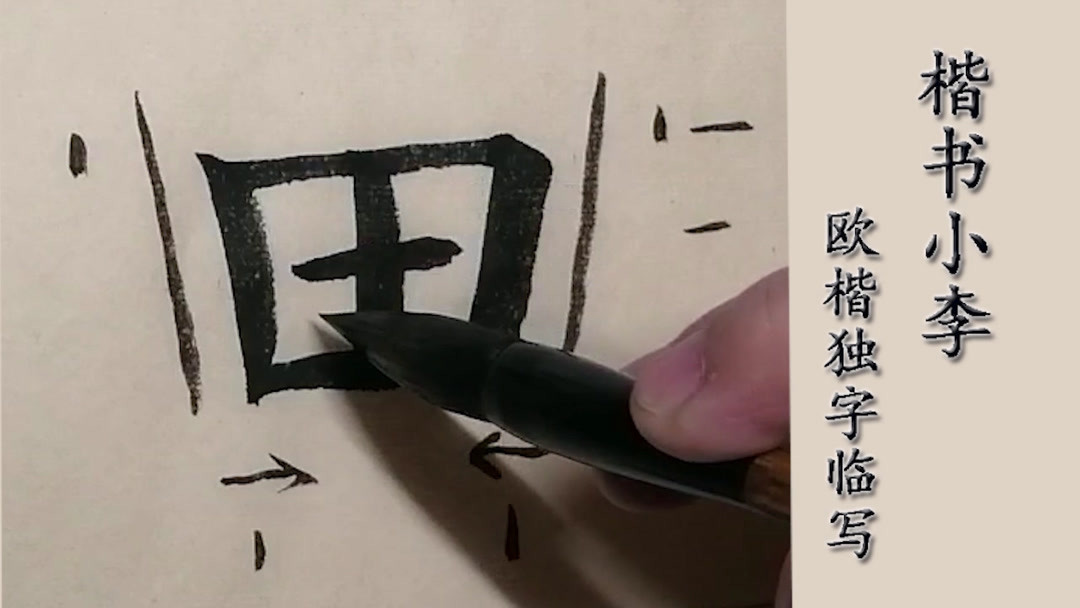 田
楷书小李
欧楷独字临写